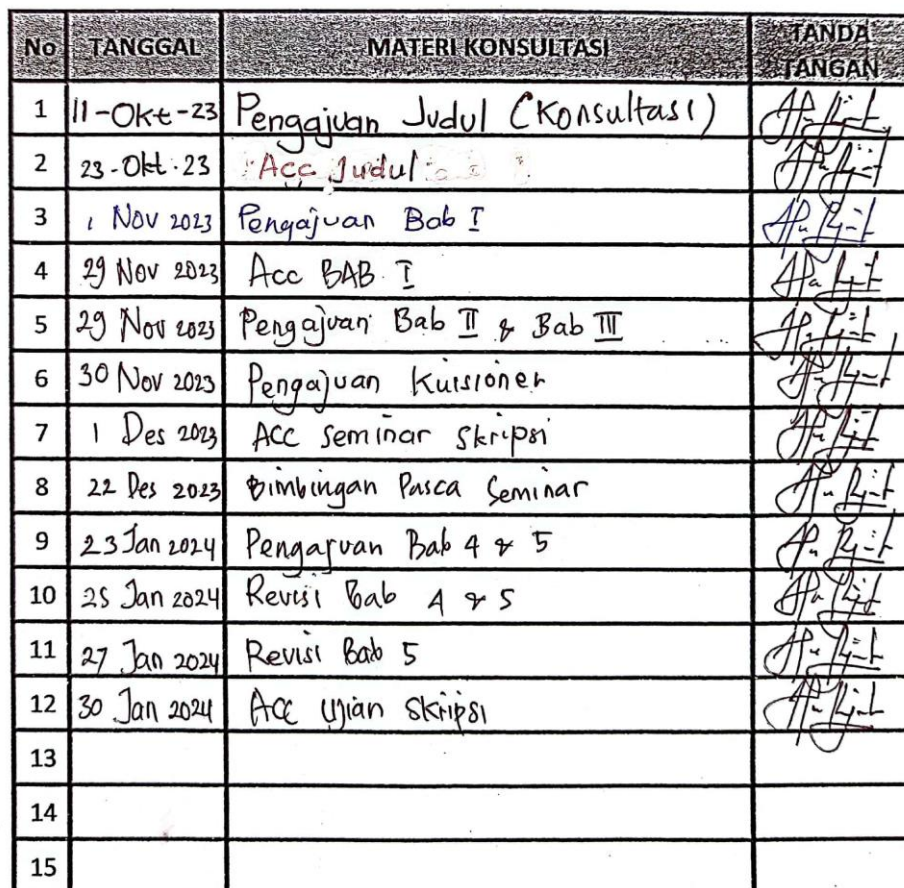 No TANGGAL MATERI KONSULTASI TANDA TANGAN
1 11-Okt-23 Pengajuan Judul (Konsultasi)
2 23-Okt-23 Acc Judul
3 1 Nov 2023 Pengajuan Bab I
4 29 Nov 2023 Acc BAB I
5 29 Nov 2023 Pengajuan Bab II & Bab III
6 30 Nov 2023 Pengajuan Kuisioner
7 1 Des 2023 ACC Seminar Skripsi
8 22 Des 2023 Bimbingan Pasca Seminar
9 23 Jan 2024 Pengajuan Bab 4 & 5
10 25 Jan 2024 Revisi Bab 4 & 5
11 27 Jan 2024 Revisi Bab 5
12 30 Jan 2024 Acc Ujian Skripsi
13
14
15